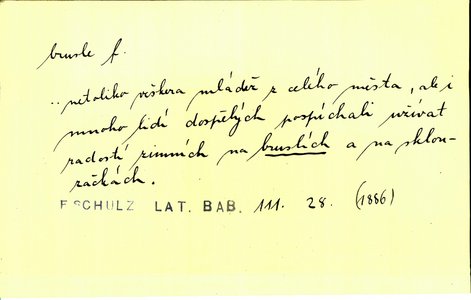 brusle f.
.. netoliko veškera mládež z celého města, ale i
mnoho lidí dospělých pospíchali užívat
radostí zimních na bruslích a na sklou-
začkách.
F. SCHULZ LAT. BAB. 111. 28. (1886)